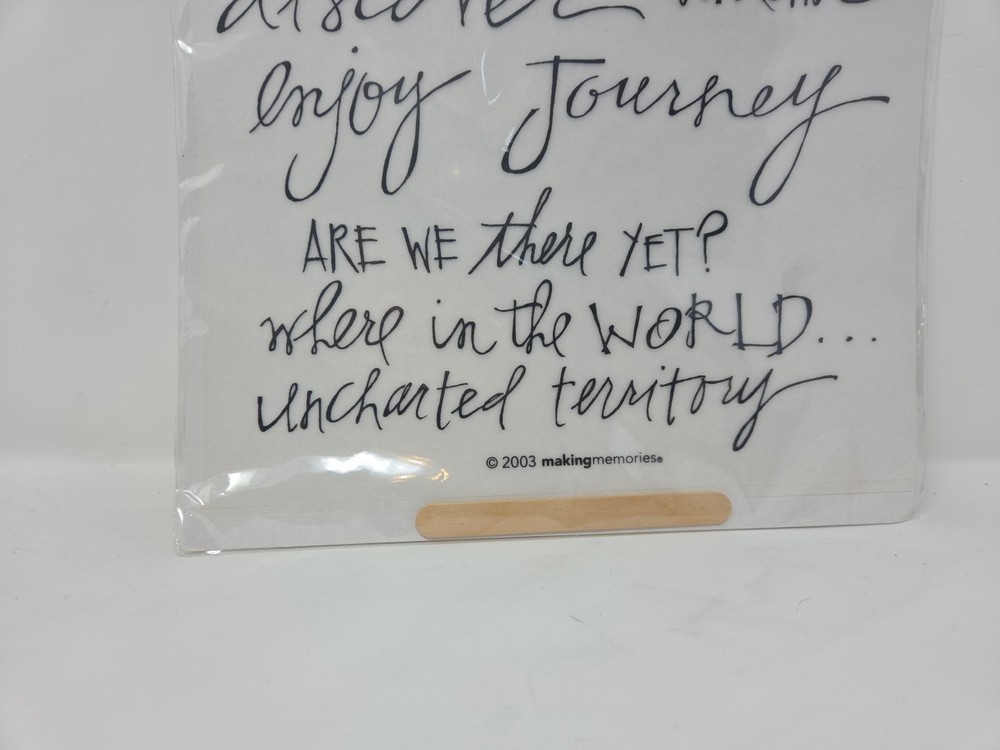 discover
enjoy Journey
ARE WE there YET?
where in the WORLD...
uncharted territory
© 2003 makingmemories®